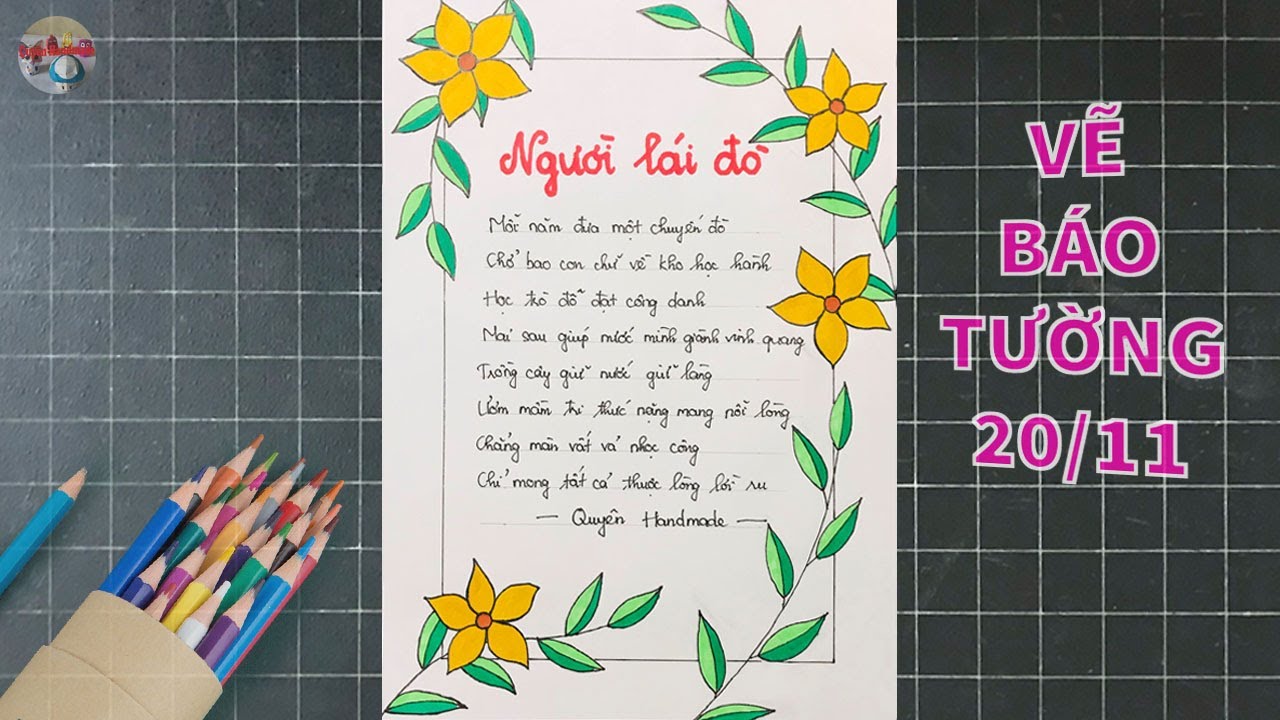 Người lái đò
Mỗi năm đưa một chuyến đò
Chở bao con chữ về kho học hành
Học trò đỗ đạt công danh
Mai sau giúp nước mình giành vinh quang
Trồng cây gửi nước gửi làng
Ươm mầm tri thức nặng mang nỗi lòng
Chẳng màn vất vả nhọc công
Chỉ mong tất cả thuộc lòng lời ru
— Quyên Handmade —
VẼ
BÁO
TƯỜNG
20/11